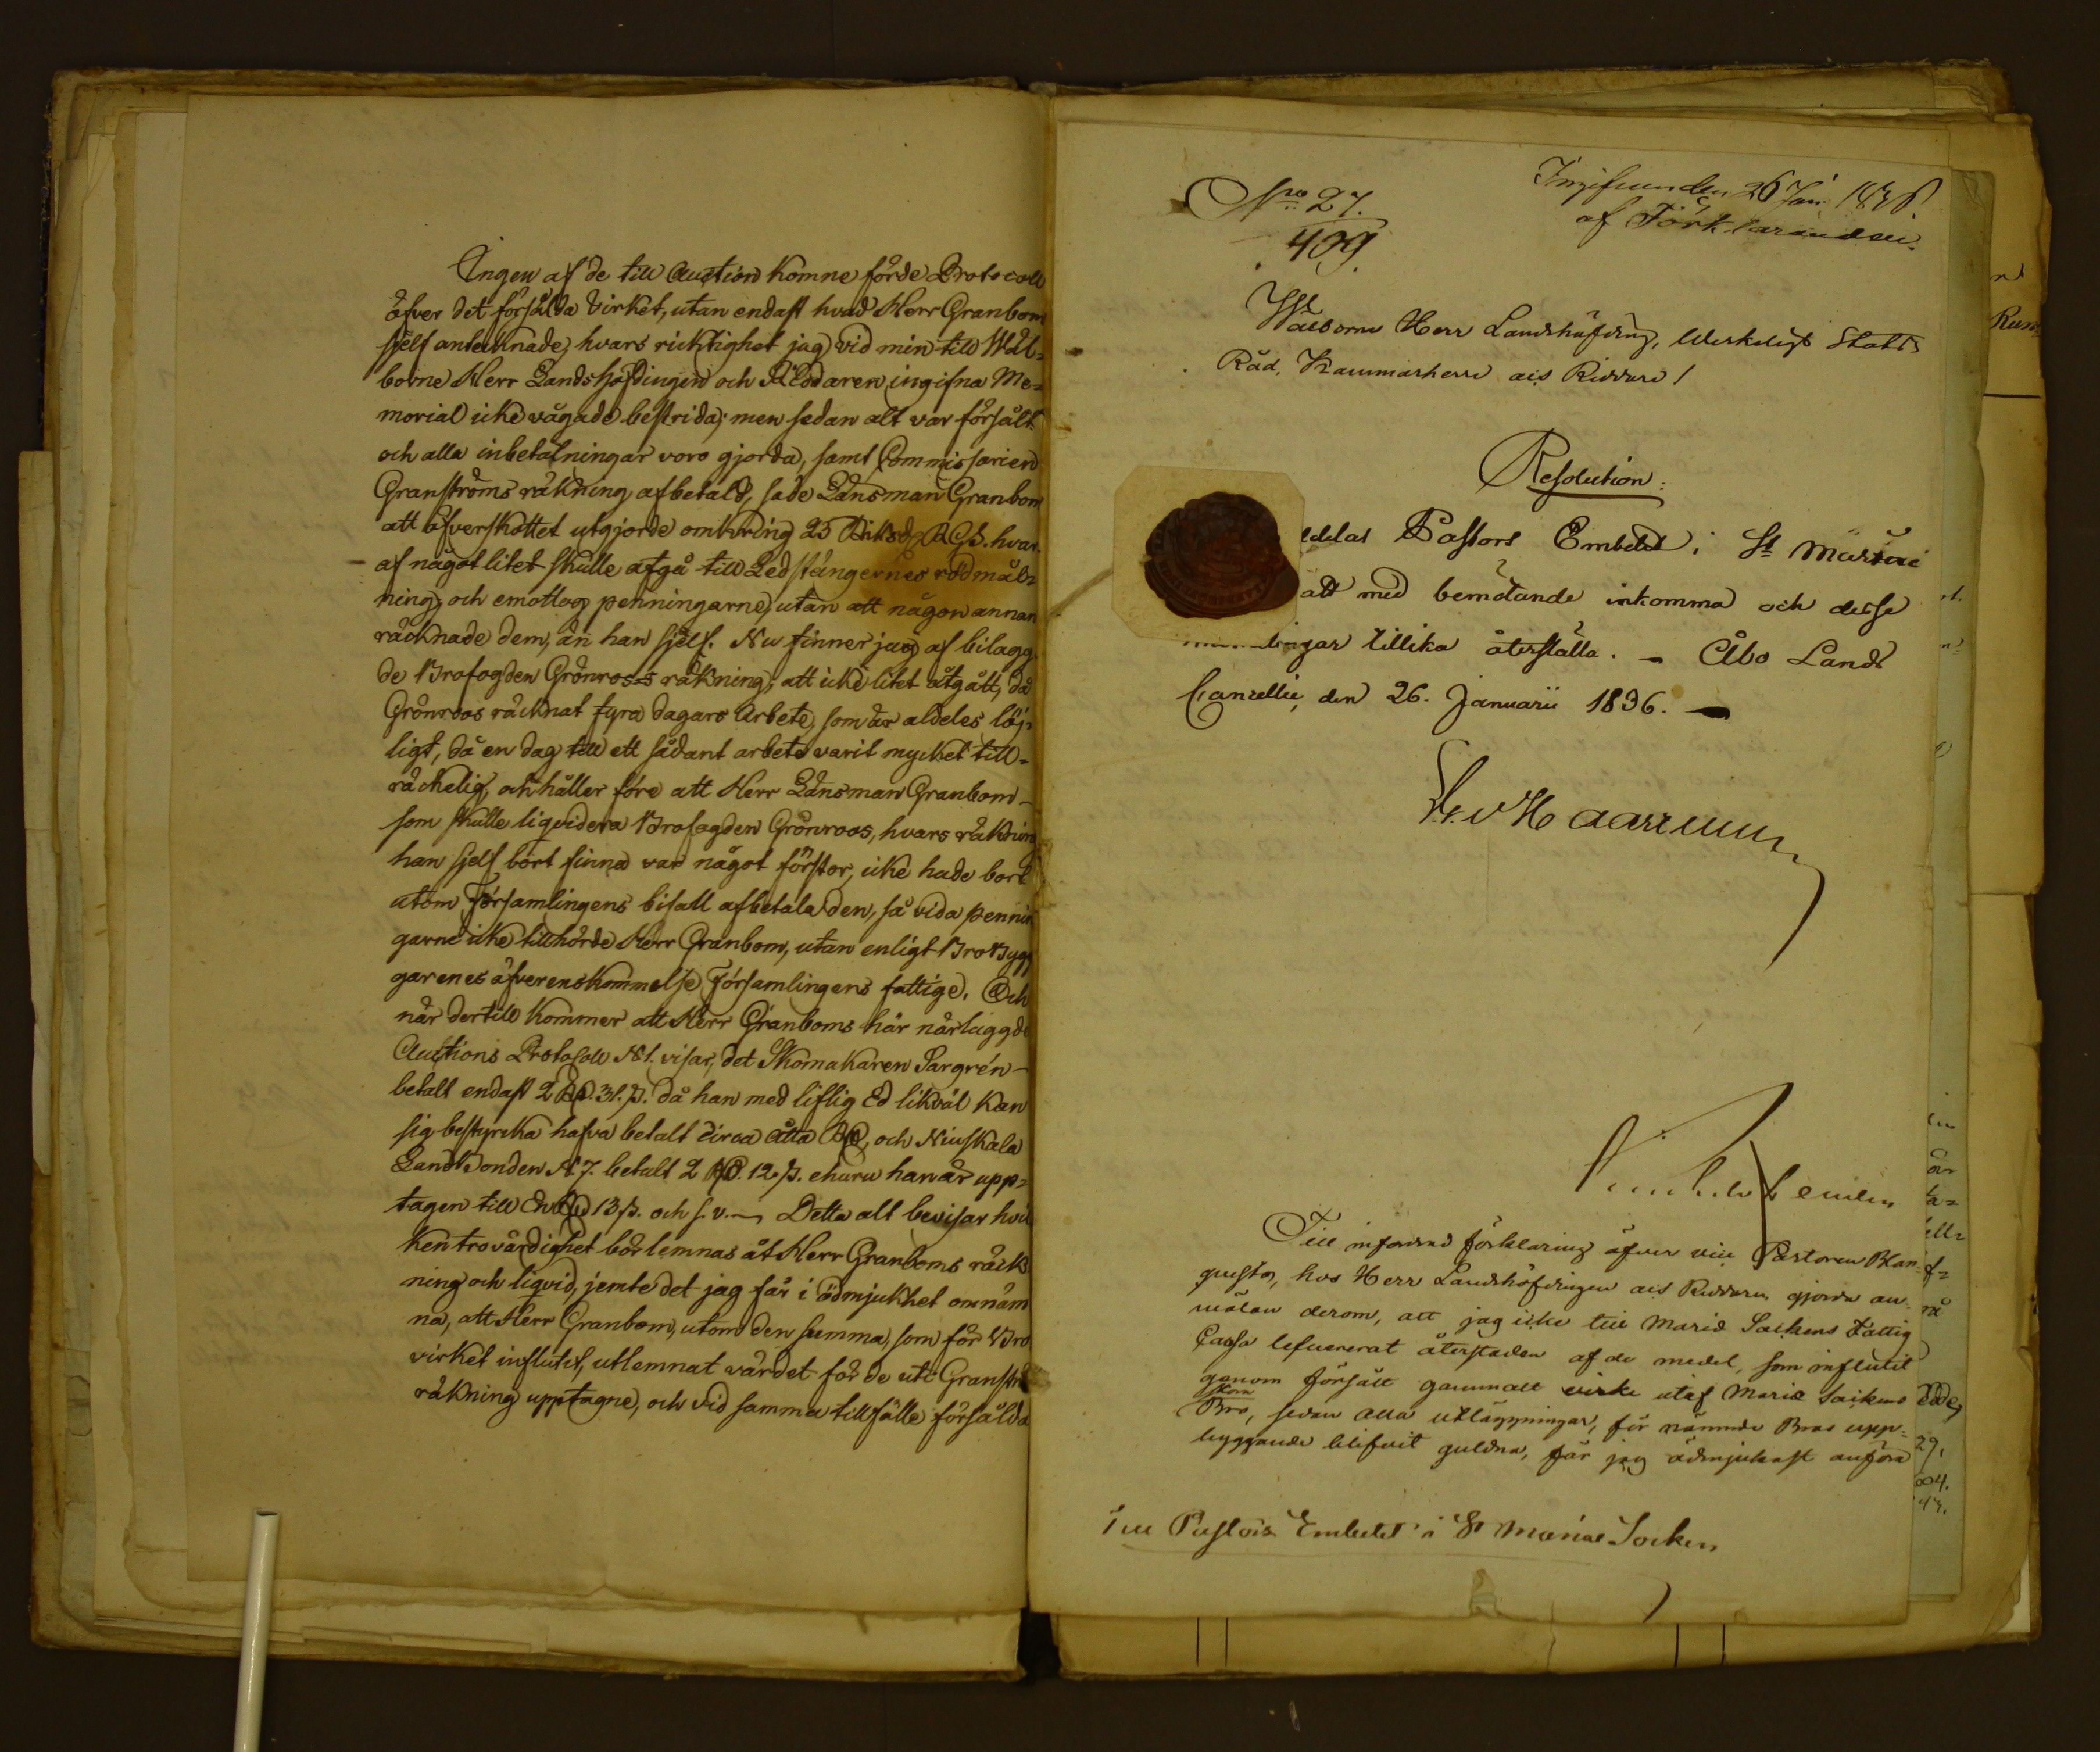 Ingen af de till Auction komne förde Protocoll
öfver det försålda Virket, utan endast hvad Herr Granbom
sjelf antecknade, hvars ricktighet jag vid min till Wäl-
borne Herr Landshöfdingen och Riddaren ingifna Me-
morial icke vågade bestrida; men sedan alt var försålt
och alla inbetalningar voro gjorda, samt Commissarien
Granströms räkning afbetald, sade Länsman Granbom
att öfverskottet utgjorde omkring 25 Riksd. B.GS. hvar-
af något litet skulle afgå till Ledstängernes rödmål-
ning, och emottog penningarne, utan att någon annan
räcknade dem, än han sjelf. Nu finner jag af bilagg
de Brofogden Grönroos räkning, att icke litet åtgått, då
Grönroos räcknat fyra dagars Arbete, som är aldeles löj-
ligt, då en dag till ett sådant arbete varit mycket till-
räckelig, och håller före att Herr Länsman Granbom
som skulle liqvidera Brofogden Grönroos, hvars räkning
han sjelf bort finna var något för stor, icke hade bort
utom Församlingens bifall afbetala den, så vida pennin
garne icke tillhörde Herr Granbom, utan enligt Brobygg
garenes öfverenskommelse Församlingens fattige. Och
när dertill kommer att Herr Granboms här närlaggde
Auctions Protokoll N 1. visar, det Skomakaren Sargrén
betalt endast 2 31. då han med liflig Ed likväl kan
sig bestyrka hafva betalt circa åtta och Niuskala
Landbonden N 7. betalt 2 12. ehuru han är upp-
tagen till En 13. och s.v. — Detta alt bevisar hvil
ken trovärdighet bör lemnas åt Herr Granboms räck
ning och liqvid, jemte det jag får i ödmjukhet omnäm
na, att Herr Granbom, utom den summa, som för Bro
virket influtit, utlemnat värdet för de uti Granstr
räkning upptagne, och vid samma tillfälle försålda
Ingifven den 26 Jan. 1836.
af Förklaranden.
No 27.
409.
Wälborne Herr Landshöfding, Werkeligt Stats
Råd, Kammarherre och Riddare!
Resolution:
Pastors Embetet i St Mariæ
att med bemötande inkomma och desse
tillika återställa. — Åbo Lands
Cancellie, den 26. Januarii 1836. —
Till infordrad förklaring öfver vice Pastoren
hos Herr Landshöfdingen och Riddaren gjorda an-
mälan derom, att jag icke till Mariæ Sockens Fattig
Cassa lefvererat återstoden af de medel, som influtit
genom försålt gammalt virke utaf Mariæ Sockens
Bro, sedan alla utläggningar, för nämnde Bros upp-
byggande blifvit guldna, får jag ödmjukast anföra
Till Pastors Embetet i St Mariæ Socken